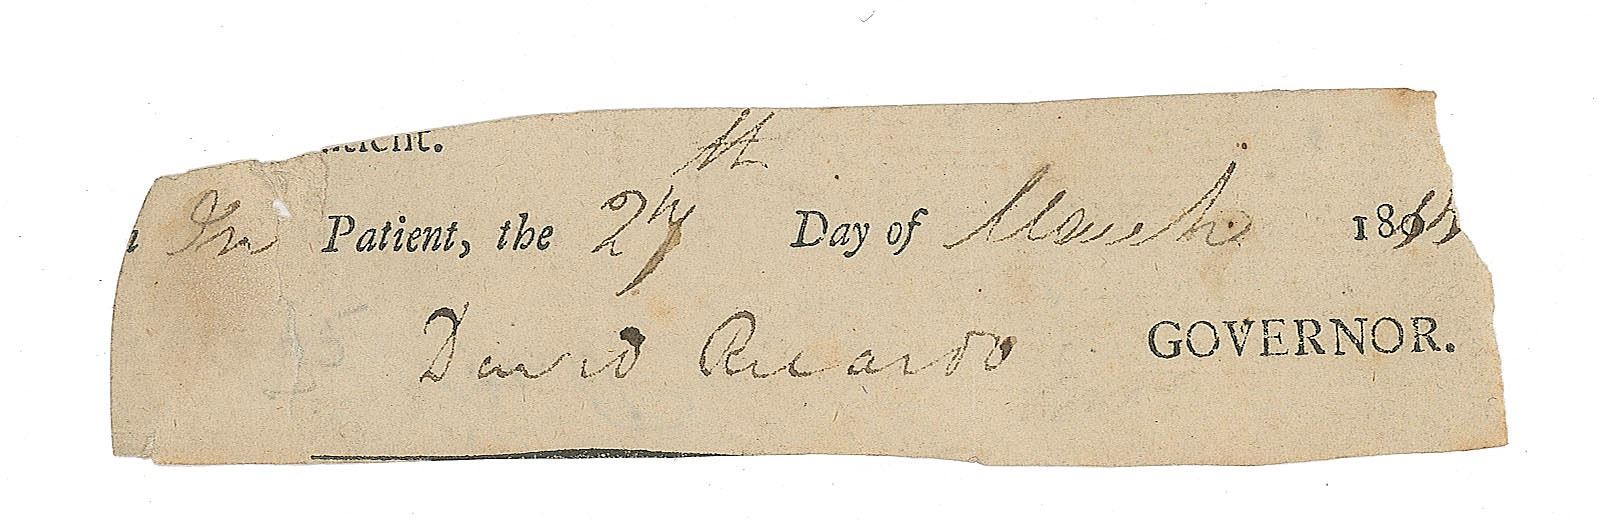 th
In Patient, the 27 Day of March 181
David Ricardo GOVERNOR.